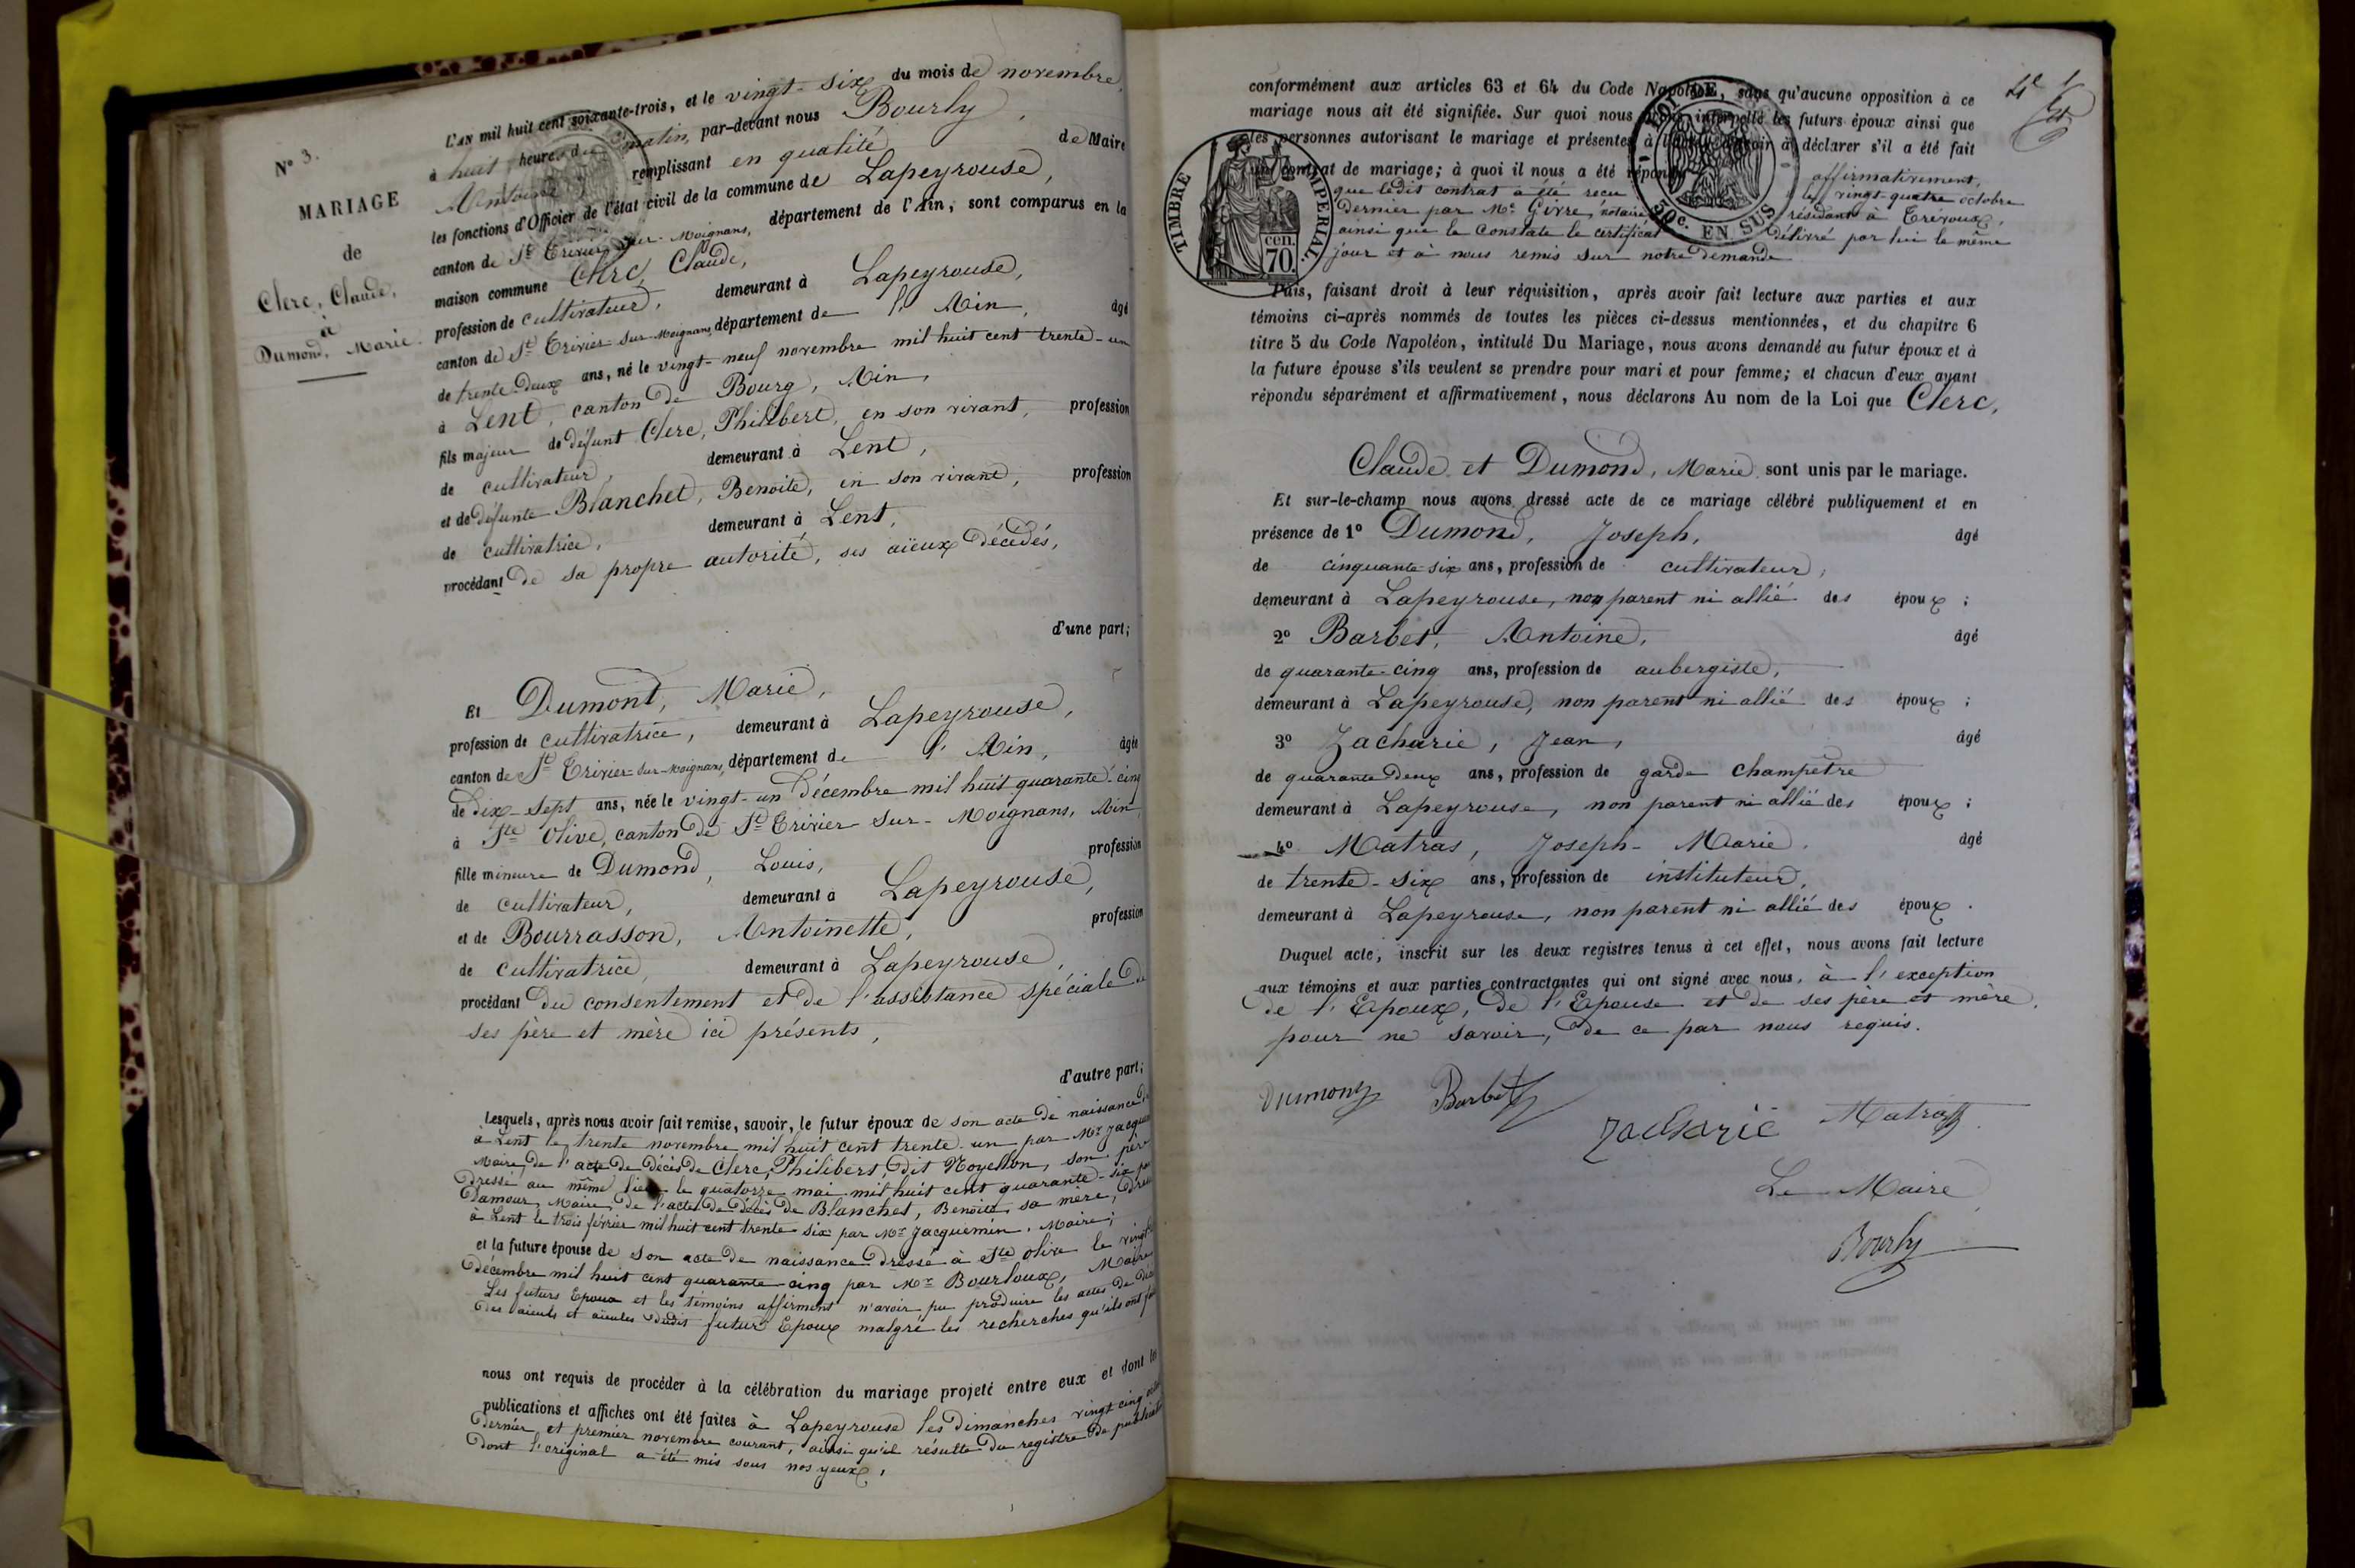 N° 3.
MARIAGE
de
Clerc, Claude,
à
Dumond, Marie.
L'AN mil huit cent soixante-trois, et le vingt-six du mois de novembre,
à huit heures du matin, par-devant nous Bourly
Antoine remplissant en qualité de Maire
les fonctions d'Officier de l'état civil de la commune de Lapeyrouse,
canton de St Trivier-sur-Moignans, département de l'Ain, sont comparus en la
maison commune Clerc, Claude,
profession de cultivateur, demeurant à Lapeyrouse,
canton de St Trivier-sur-Moignans, département de l'Ain, âgé
de trente-deux ans, né le vingt-neuf novembre mil huit cent trente-un
à Lent, canton de Bourg, Ain,
fils majeur de défunt Clerc, Philibert, en son vivant, profession
de cultivateur, demeurant à Lent,
et de défunte Blanchet, Benoite, en son vivant, profession
de cultivatrice, demeurant à Lent,
procédant de sa propre autorité, ses aïeux décédés,
d'une part;
Et Dumont, Marie,
profession de cultivatrice, demeurant à Lapeyrouse,
canton de St Trivier-sur-Moignans, département de l'Ain, âgée
de dix-sept ans, née le vingt-un décembre mil huit quarante-cinq
à Ste Olive, canton de St Trivier-sur-Moignans, Ain
fille mineure de Dumond, Louis, profession
de cultivateur, demeurant à Lapeyrouse,
et de Bourrasson, Antoinette, profession
de cultivatrice, demeurant à Lapeyrouse,
procédant du consentement et de l'assistance spéciale de
ses père et mère ici présents,
d'autre part;
Lesquels, après nous avoir fait remise, savoir, le futur époux de son acte de naissance
à Lent le trente novembre mil huit cent trente-un par Mr Jacquemin
Maire, de l'acte de décès de Clerc, Philibert dit Noyellon, son père
dressé au même lieu le quatorze mai mil huit cent quarante-six par
Damour, Maire, de l'acte de décès de Blanchet, Benoite, sa mère,
à Lent le trois février mil huit cent trente-six par Mr Jacquemin, Maire;
et la future épouse de son acte de naissance dressé à Ste Olive le vingt
décembre mil huit cent quarante-cinq par Mr Bourloux, Maire
Les futurs Epoux et les témoins affirment n'avoir pu produire les actes de décès
des aïeuls et aïeules dudit futur Epoux malgré les recherches qu'ils ont fait
nous ont requis de procéder à la célébration du mariage projeté entre eux et dont les
publications et affiches ont été faites à Lapeyrouse les dimanches vingt-cinq
dernier et premier novembre courant, ainsi qu'il résulte du registre de
dont l'original a été mis sous nos yeux,
conformément aux articles 63 et 64 du Code Napoléon, sans qu'aucune opposition à ce
mariage nous ait été signifiée. Sur quoi nous avons interpellé les futurs époux ainsi que
les personnes autorisant le mariage et présentes à déclarer s'il a été fait
un contrat de mariage; à quoi il nous a été répondu affirmativement,
que ledit contrat a été reçu le vingt-quatre octobre
dernier par Me Givre, notaire résidant à Trévoux,
ainsi que le constate le certificat délivré par lui le même
jour et à nous remis sur notre demande
TIMBRE IMPERIAL.
cen.
70.
LOI DE
50c. EN SUS
Puis, faisant droit à leur réquisition, après avoir fait lecture aux parties et aux
témoins ci-après nommés de toutes les pièces ci-dessus mentionnées, et du chapitre 6
titre 5 du Code Napoléon, intitulé Du Mariage, nous avons demandé au futur époux et à
la future épouse s'ils veulent se prendre pour mari et pour femme; et chacun d'eux ayant
répondu séparément et affirmativement, nous déclarons Au nom de la Loi que Clerc,
Claude et Dumond, Marie sont unis par le mariage.
Et sur-le-champ nous avons dressé acte de ce mariage célébré publiquement et en
présence de 1° Dumond, Joseph, âgé
de cinquante-six ans, profession de cultivateur,
demeurant à Lapeyrouse, non parent ni allié des époux;
2° Barbet, Antoine, âgé
de quarante-cinq ans, profession de aubergiste,
demeurant à Lapeyrouse, non parent ni allié des époux;
3° Zacharie, Jean, âgé
de quarante-deux ans, profession de garde champêtre
demeurant à Lapeyrouse, non parent ni allié des époux;
4° Matras, Joseph-Marie, âgé
de trente-six ans, profession de instituteur,
demeurant à Lapeyrouse, non parent ni allié des époux.
Duquel acte, inscrit sur les deux registres tenus à cet effet, nous avons fait lecture
aux témoins et aux parties contractantes qui ont signé avec nous, à l'exception
de l'Epoux, de l'Epouse et de ses père et mère,
pour ne savoir, de ce par nous requis.
Dumont Barbet
Zacharie Matras
Le Maire
Bourly